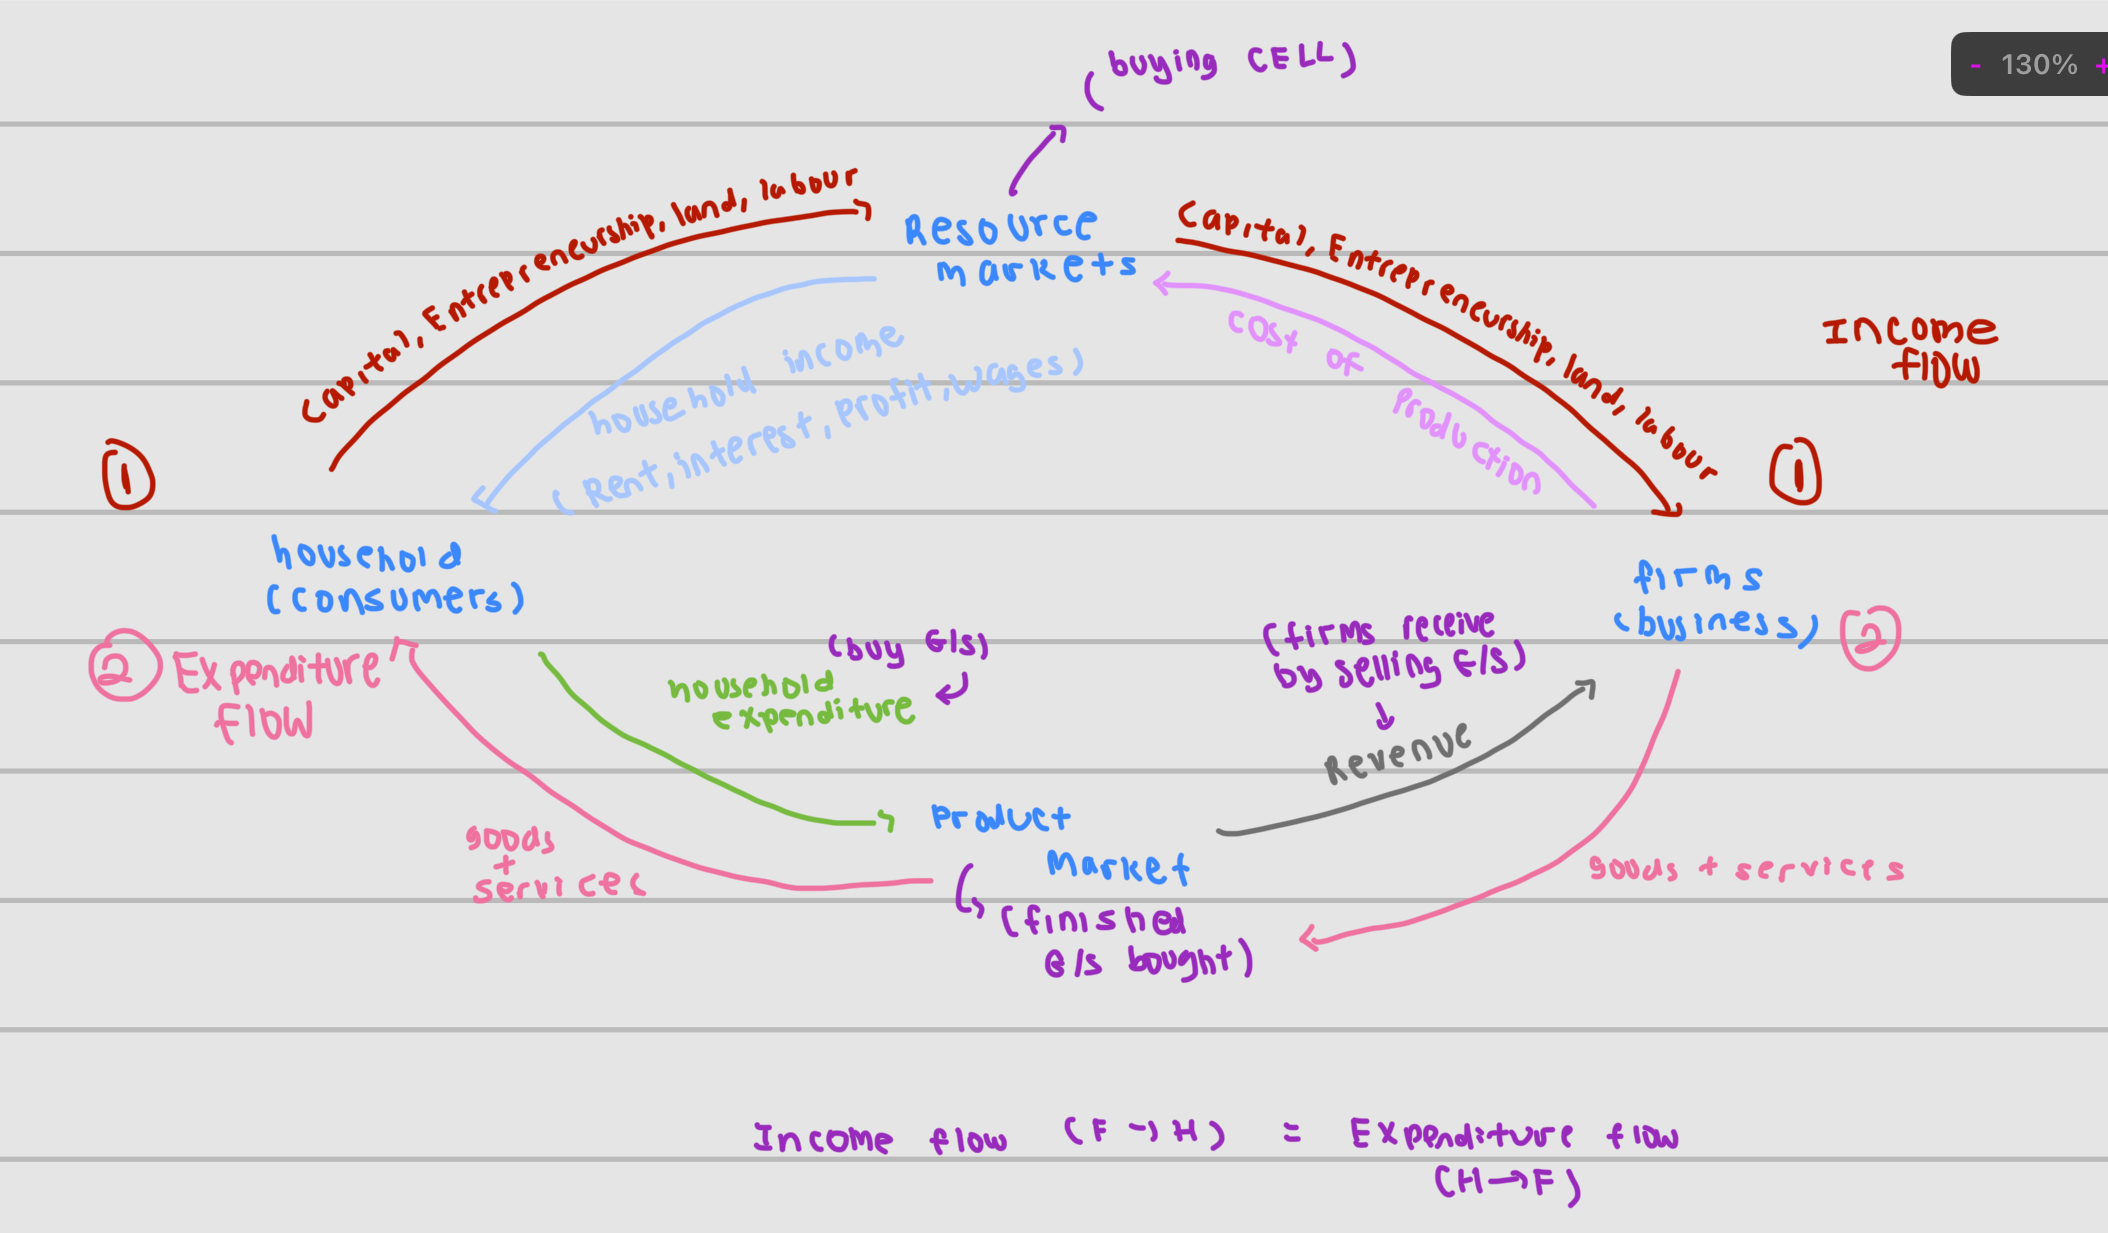 (buying CELL)
- 130% +
Capital, Entrepreneurship, land, labour
Resource
markets
Capital, Entrepreneurship, land, labour
cost of
Production
Income
flow
household income
(Rent, interest, profit, wages)
1
1
household
(consumers)
firms
(business)
2
2
Expenditure
flow
(buy G/s)
household
expenditure
(firms receive
by selling G/S)
Revenue
Product
Market
goods
+
services
goods + services
(finished
G/s bought)
Income flow (F → H) = Expenditure flow
(H → F)